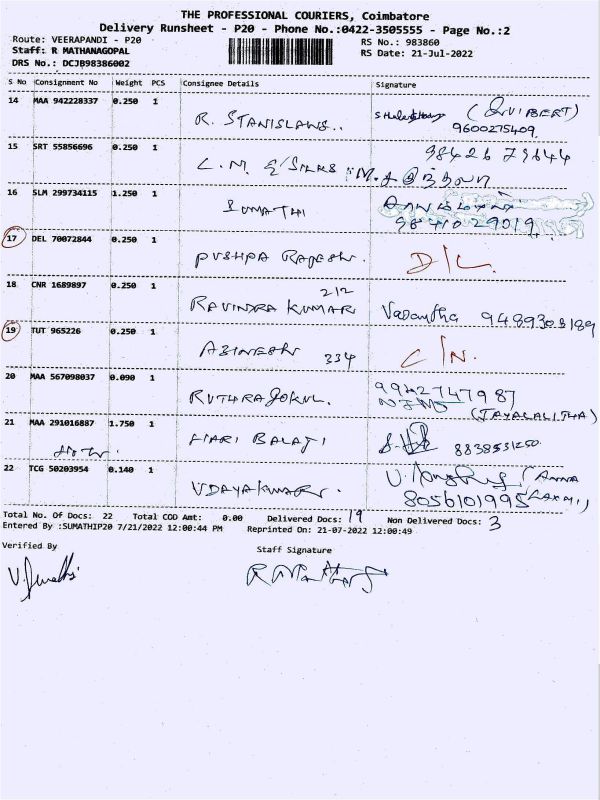 THE PROFESSIONAL COURIERS, Coimbatore
Delivery Runsheet - P20 - Phone No.:0422-3505555 - Page No.:2
Route: VEERAPANDI - P20 RS No.: 983860
Staff: R MATHANAGOPAL RS Date: 21-Jul-2022
DRS No.: DCJB98386002
S No Consignment No Weight PCS Consignee Details Signature
14 MAA 942228337 0.250 1 R. STANISLAUS..
9600275409
15 SRT 55856696 0.250 1 L.M
16 SLM 299734115 1.250 1 SUMATHI
9841029019
17 DEL 70072844 0.250 1 PUSHPA RAJESH. D/L.
18 CNR 1689897 0.250 1 RAVINDRA KUMAR 212 Vasantha 9489303189
19 TUT 965226 0.250 1 ABINESH 334 C/N.
20 MAA 567098037 0.090 1 RUTHRAGOKUL. 9942747987
(JAYALALITHA)
21 MAA 291016887 1.750 1 HARI BALAJI 8838531250
22 TCG 50203954 0.140 1 UDAYAKUMAR. (ANNA
8056101995 LAXMI)
Total No. Of Docs: 22 Total COD Amt: 0.00 Delivered Docs: 19 Non Delivered Docs: 3
Entered By :SUMATHIP20 7/21/2022 12:00:44 PM Reprinted On: 21-07-2022 12:00:49
Verified By Staff Signature